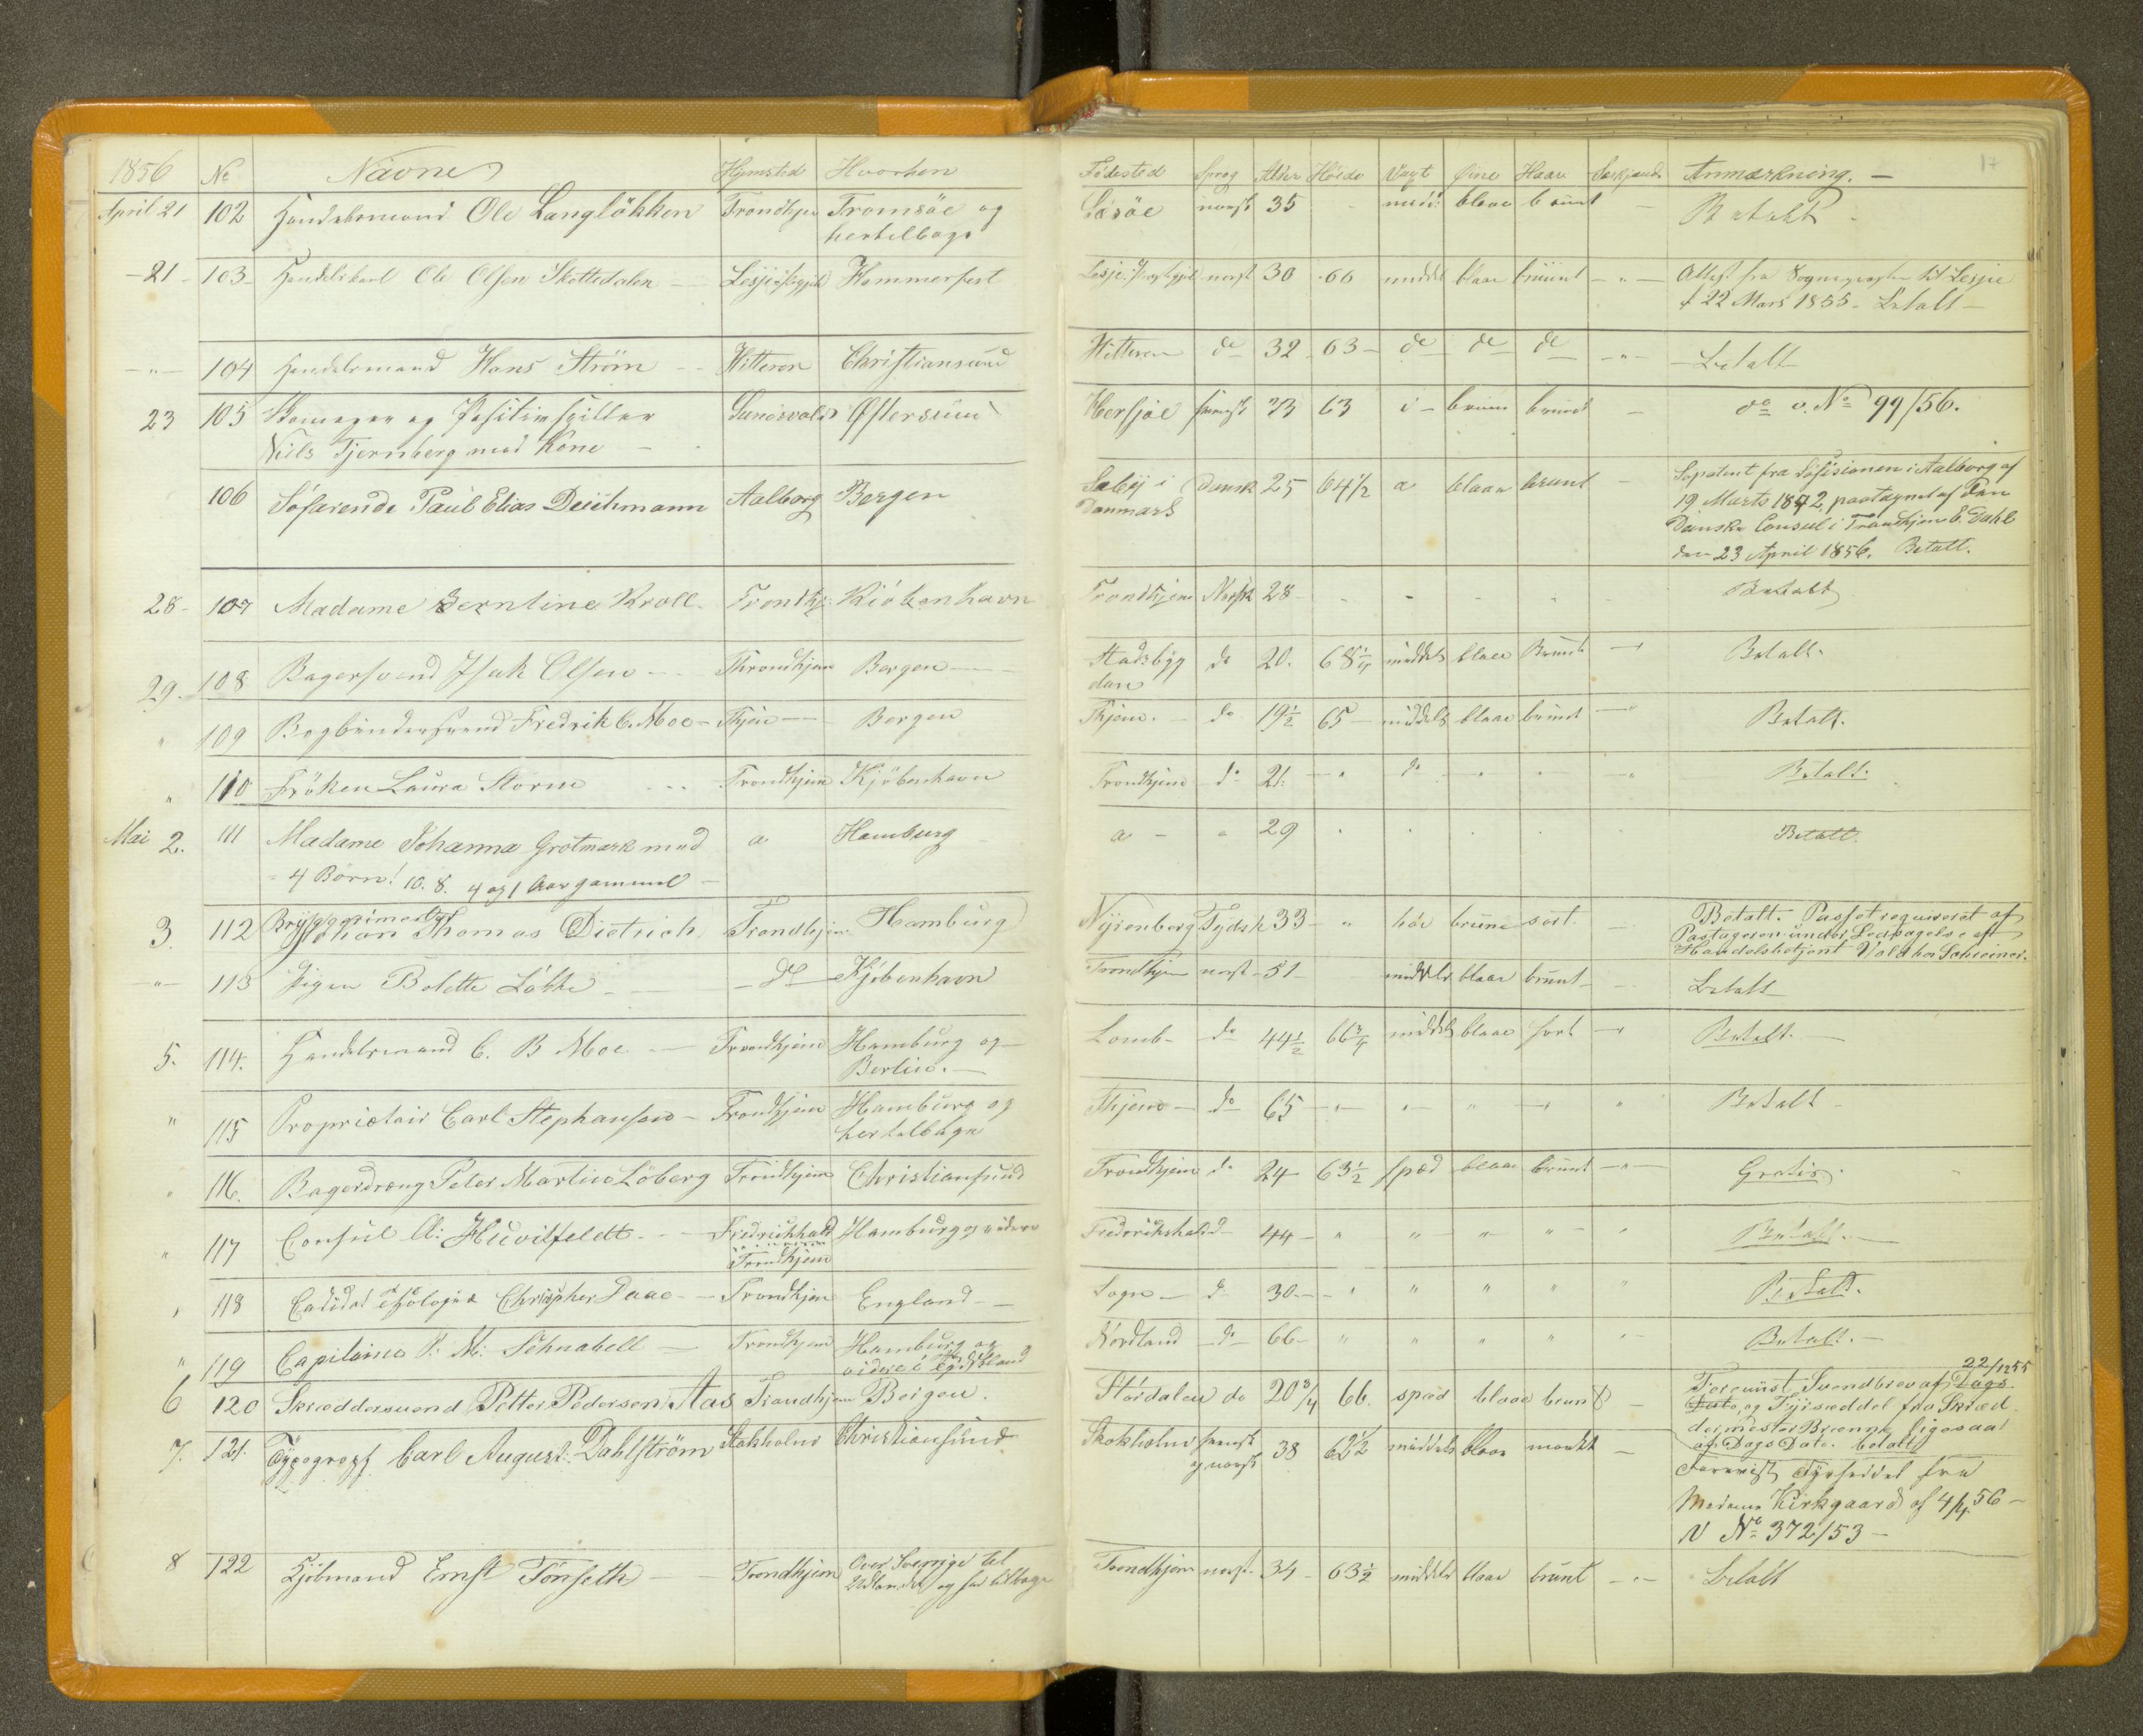 1856 No Navne Hjemsted Hvorhen
April 21 102 Handelsmand Ole Langlökken Trondhjem Tromsöe og
hertilbage
-21- 103 Handelskarl Ole Olsen Skottedalen Lesje Hammerfest
-"- 104 Handelsmand Hans Ström Hitteren Christiansund
23 105 Skomager og Positivspiller Sundsvald Östersund
Niels Tjernberg med Kone
106 Söfarende Paul Elias Deichmann Aalborg Bergen
28- 107 Madame Berntine Kroll Trondhj: Kiöbenhavn
29. 108 Bagersvend Isak Olsen Throndhjem Bergen
" 109 Bogbindersvend Fredrik C. Moe Thjem Bergen
" 110 Fröken Laura Storm Trondhjem Kjöbenhavn
Mai 2. 111 Madame Johanna Grotmark med a Hamburg
4 Börn! 10. 8. 4 og 1 Aar gammel
3. 112 Johan Thomas Dietrich Trondhjem Hamburg
-"- 113 Pigen Bolette Lökke do Kjöbenhavn
5. 114. Handelsmand C. B Moe Trondhjem Hamburg og
Berlin.
" 115 Proprietair Carl Stephansen Trondhjem Hamburg og
hertilbage
" 116. Bagerdreng Peter Martin Löberg Trondhjem Christiansund
" 117 Consul Huitfeldt Fredrikshald Hamburg og videre
Trondhjem
" 118 Christopher Daae Trondhjem England
" 119 Capitaine Schnabell Trondhjem Hamburg og
videre i
6 120 Skræddersvend Petter Pedersen Aas Trondhjem Bergen.
7. 121. Typograpf Carl August Dahlström Stokholm Christiansund
8 122 Kjöbmand Ernst Tönseth Trondhjem Over Sverrige til
Udlandet og her tilbage
Födested Sprog Alder Höide Vext Öine Haar Anmærkning. 17
norsk 35 - midd: blaae brunt - Betalt
Lesje norsk 30 -66 middel blaae brunt -"- Attest fra Sognepresten til Lesje
22 Mars 1855 - Betalt
Hitteren do 32 63 do do do -"- Betalt
svensk 63 brune brunt - do v. No 99/56.
Sæby i dansk 25 64 1/2 a blaae brunt - Söpatent fra i Aalborg af
Danmark 19 Marts 1842, paategnet af den
Danske Consul i Trondhjem Dahl
den 23 April 1856. Betalt.
Trondhjem Norsk 28 - - - - Betalt
Stadsbyg do 20. 68 1/4 middels blaae Brunt Betalt.
Thjem. do 19 1/2 65 middels blaae brunt Betalt.
Trondhjem do 21. " do " " " Betalt.
a - " 29 Betalt.
Nyrenberg Tydsk 33 - " höi brune sort Betalt. Passet requireret af
Handelsbetjent
Trondhjem norsk 51 middels blaae brunt Betalt
Lomb do 44 1/2 66 3/4 middels blaae sort Betalt.
Thjem do 65 " " " " " Betalt
Trondhjem do 24 63 1/2 spæd blaae brunt -"- Gratis.
Frederikshald 44 " " " " " Betalt.
Sogn do 30 " " " " " Betalt.
Nordland do 66 " " " " " Betalt.
Stördalen do 20 3/4 66. spæd blaae brunt - Forevist Svendebrev af Dags 22/12 55
Dato, og Fyrseddel fra Skræd
dermester ligesaa
af Dags Dato. betalt
Stokholm svensk 38 62 1/2 middels blaae mørkt - Forevist Fyrseddel fra
og norsk
Madame Kirkgaard af 4/4 56 -
V No 372/53 -
Trondhjem norsk 34 63 1/2 middels blaae brunt -"- Betalt